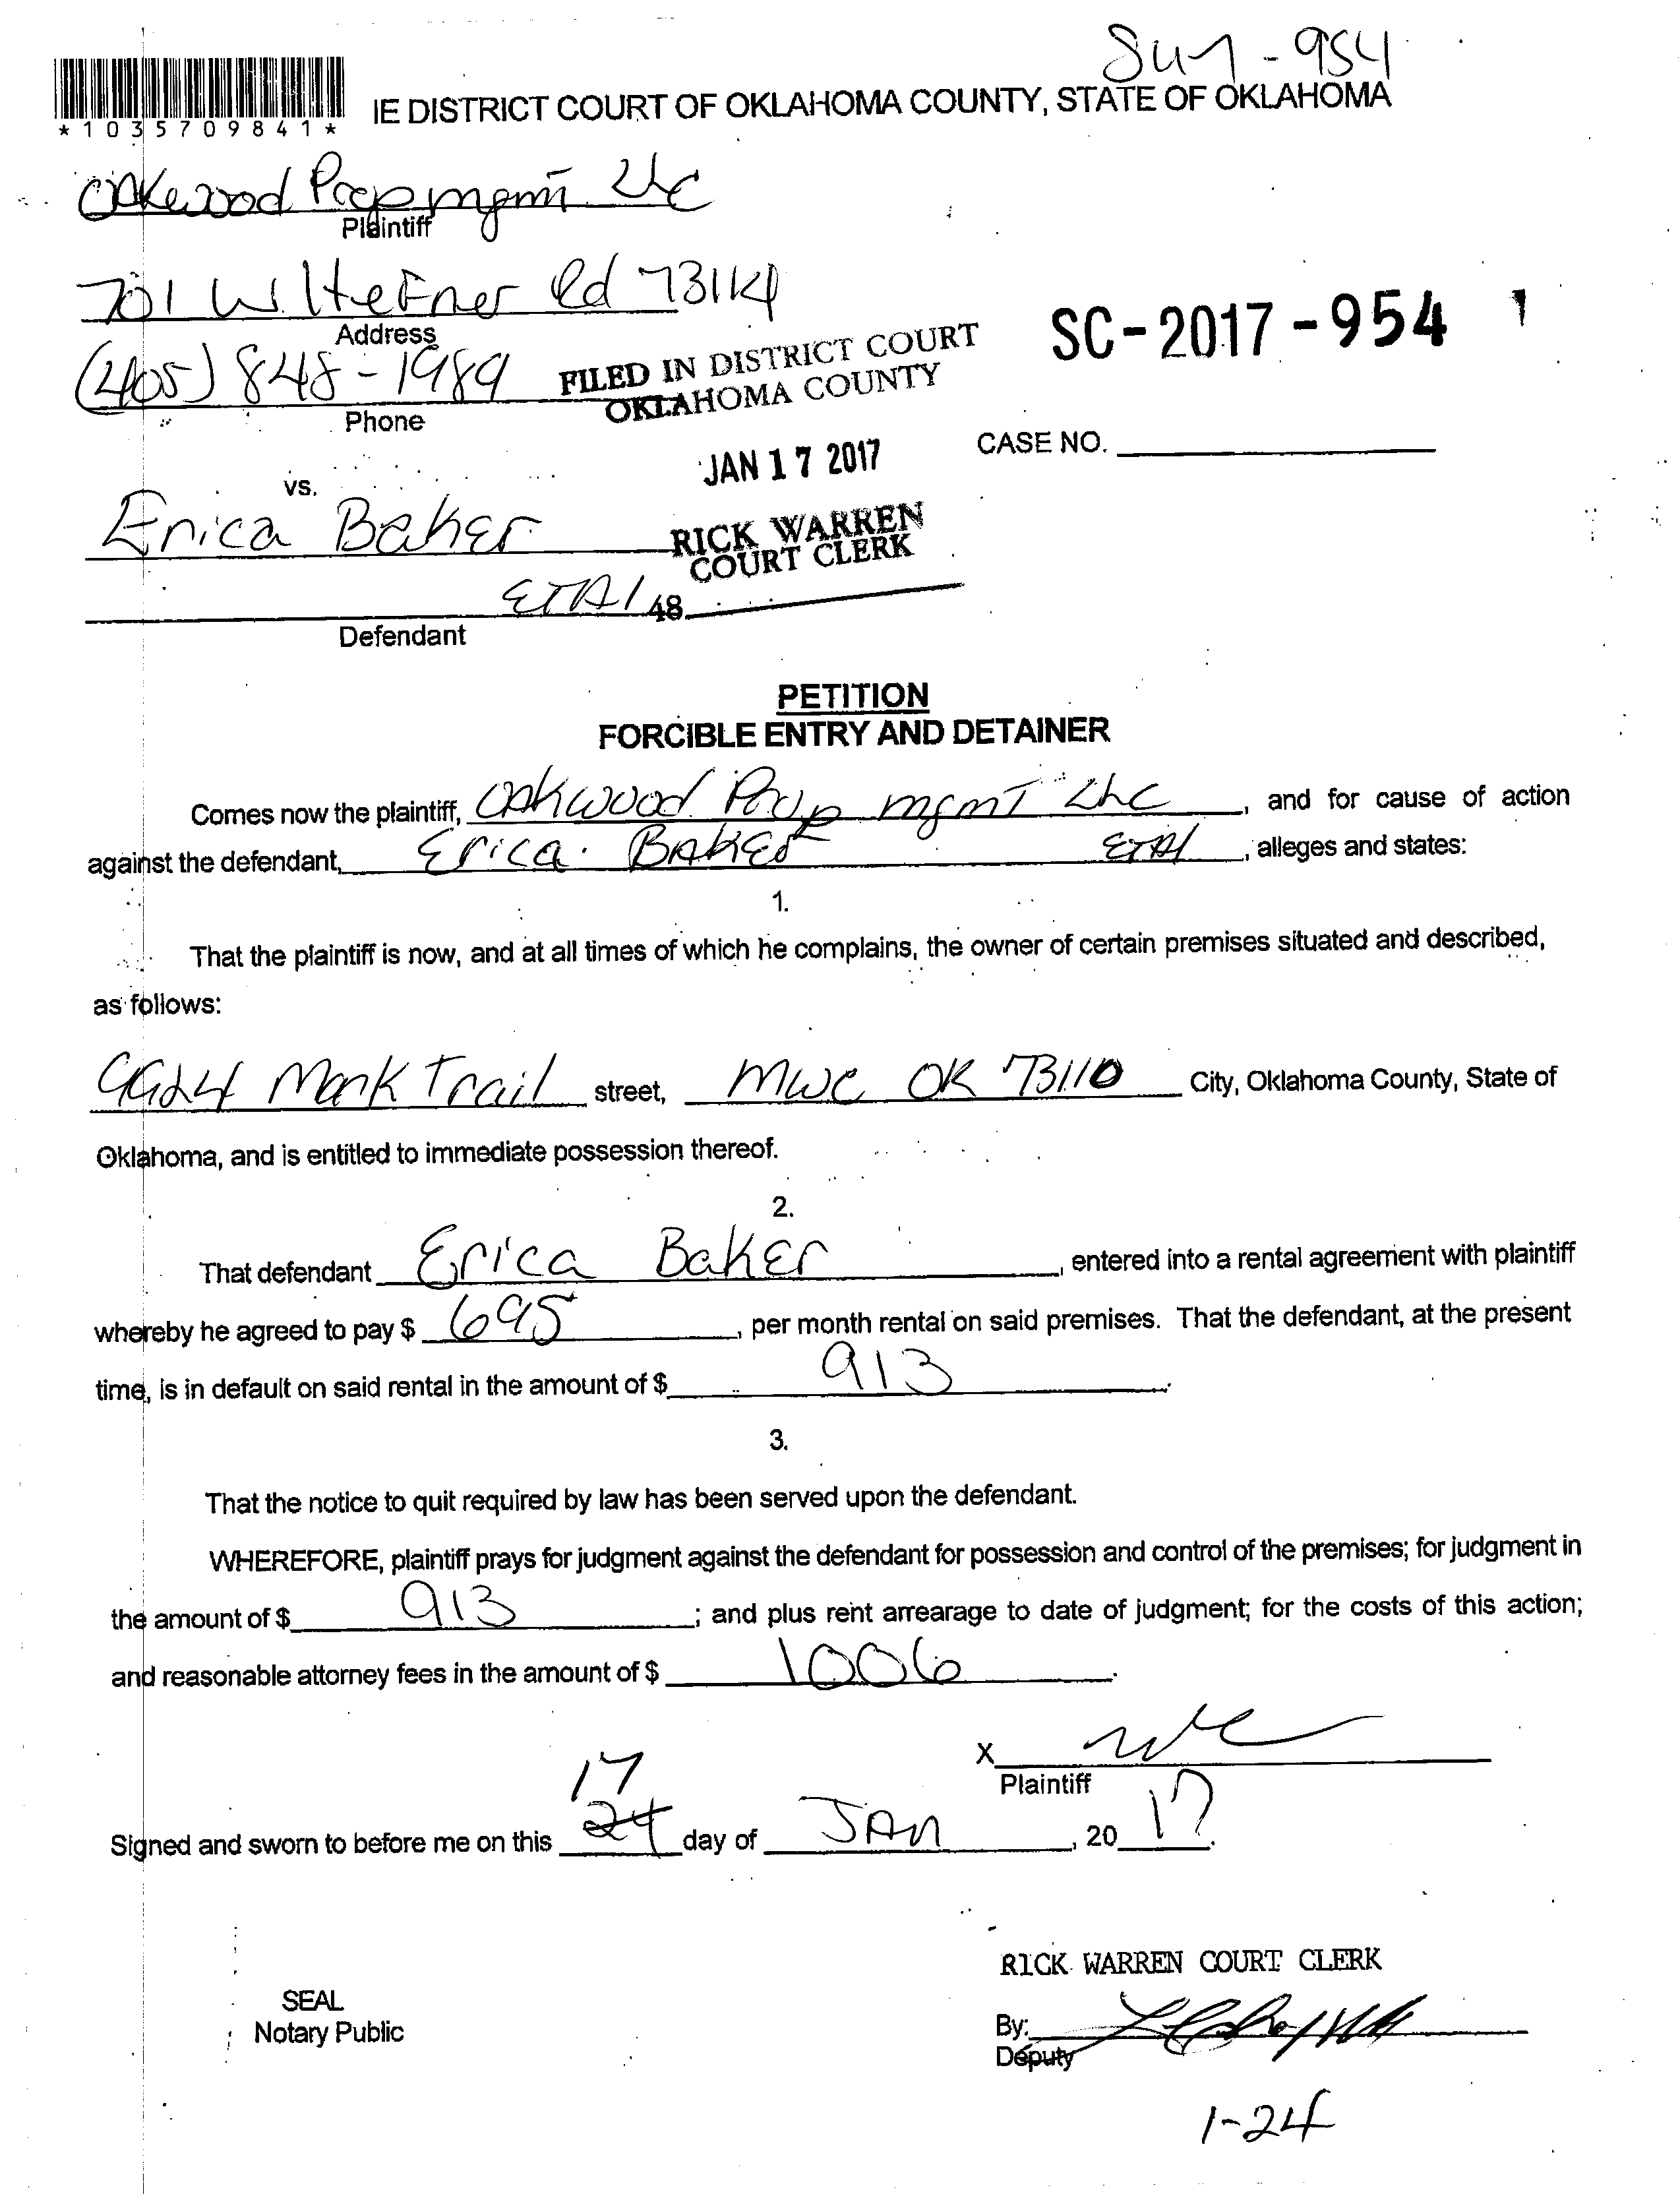 -954
IE DISTRICT COURT OF OKLAHOMA COUNTY, STATE OF OKLAHOMA
*1035709841*
Oakwood Prop mgmt LLC
Plaintiff
701 W. Hefner Rd 73114
Address
(405) 848-1989
Phone
FILED IN DISTRICT COURT
OKLAHOMA COUNTY
SC-2017-954
JAN 17 2017
CASE NO.
vs.
Erica Baker
RICK WARREN
COURT CLERK
ETAl 48
Defendant
PETITION
FORCIBLE ENTRY AND DETAINER
Comes now the plaintiff, Oakwood Prop mgmT LLC, and for cause of action
against the defendant, Erica Baker ETAl, alleges and states:
1.
That the plaintiff is now, and at all times of which he complains, the owner of certain premises situated and described,
as follows:
9924 Mark Trail street, MWC OK 73110 City, Oklahoma County, State of
Oklahoma, and is entitled to immediate possession thereof.
2.
That defendant Erica Baker, entered into a rental agreement with plaintiff
whereby he agreed to pay $ 695, per month rental on said premises. That the defendant, at the present
time, is in default on said rental in the amount of $ 913.
3.
That the notice to quit required by law has been served upon the defendant.
WHEREFORE, plaintiff prays for judgment against the defendant for possession and control of the premises; for judgment in
the amount of $ 913; and plus rent arrearage to date of judgment; for the costs of this action;
and reasonable attorney fees in the amount of $ 1006.
X
Plaintiff
17
Signed and sworn to before me on this 24 day of JAn, 20 17.
RICK WARREN COURT CLERK
SEAL
Notary Public
By:
Deputy
1-24